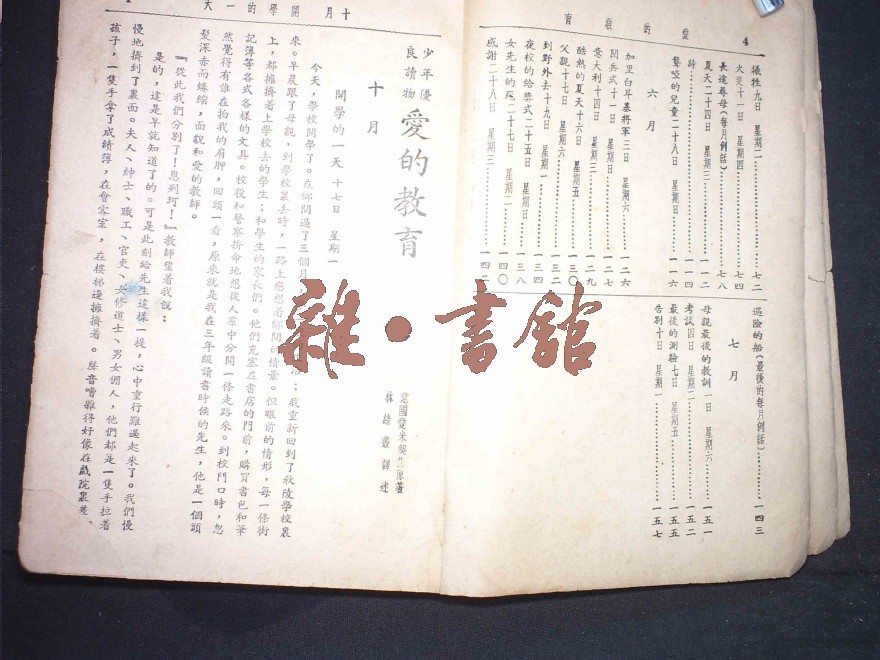 4
愛的教育
犧牲九日 星期二……七二
火災十一日 星期四……七四
長途尋母(每月例話)……七八
夏天二十四日 星期三……一一二
詩……一一四
聾啞的兒童二十八日 星期日……一一六
六月
加里白耳基將軍三日 星期六……一二六
閱兵式十一日 星期日……一二七
意大利十四日 星期三……一二九
酷熱的夏天十六日 星期五……一三〇
父親十七日 星期六……一三二
到野外去十九日 星期一……一三四
夜校的給獎式二十五日 星期日……一三八
女先生的死二十七日 星期二……一四〇
感謝二十八日 星期三……一四二
遇險的船(最後的每月例話)……一四三
七月
母親最後的教訓一日 星期六……一五一
考試四日 星期二……一五二
最後的測驗七日 星期五……一五五
告別十日 星期一……一五七
十月 開學的一天
1
少年優
良讀物
愛的教育
意國愛米契原著
林綠叢譯述
十月
開學的一天 十七日 星期一
今天,學校開學了。在鄉間過了三個月,;我重新回到了秋陵學校裏
來。早晨跟了母親,到學校裏去時,一路上戀想着鄉間的情景。但眼前的情形,每一條街
上,都擁擠着上學校去的學生;和學生的家長們。他們充塞在書店的門前,購買書包和筆
記簿等各式各樣的文具。校役和警察拚命地想從人羣中分開一條走路來。到校門口時,忽
然覺得有誰在拍我的肩胛,回頭一看,原來就是我在三年級讀書時候的先生,他是一個頭
髮深赤而蜷縮,面貌和愛的教師。
『從此我們分別了!恩列珂!』教師望着我說:
是的,這是早就知道了的。可是此刻給先生這樣一提,心中重行難過起來了。我們慢
慢地擠到了裏面。夫人、紳士、職工、官吏、女修道士、男女佣人,他們都是一隻手拉着
孩子,一隻手拿了成績簿,在會客室,在樓梯邊擁擠着。聲音嘈雜得好像在戲院裏差、
雜·書館